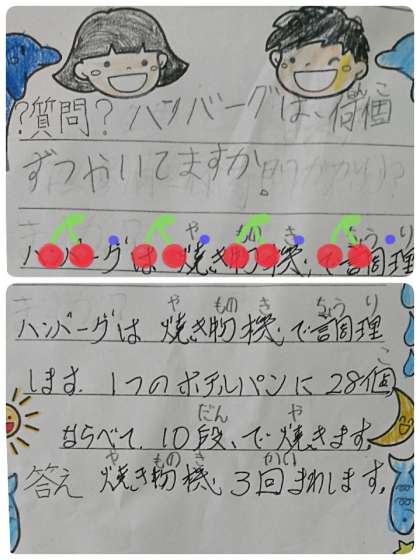 ?質問? ハンバーグは、何個
ずつやいてますか。
ハンバーグは焼き物機、で調理
ハンバーグは 焼き物機、で調理
します。1つのホテルパンに28個
ならべて、10段、で焼きます。
答え 焼き物機、3回まわします。